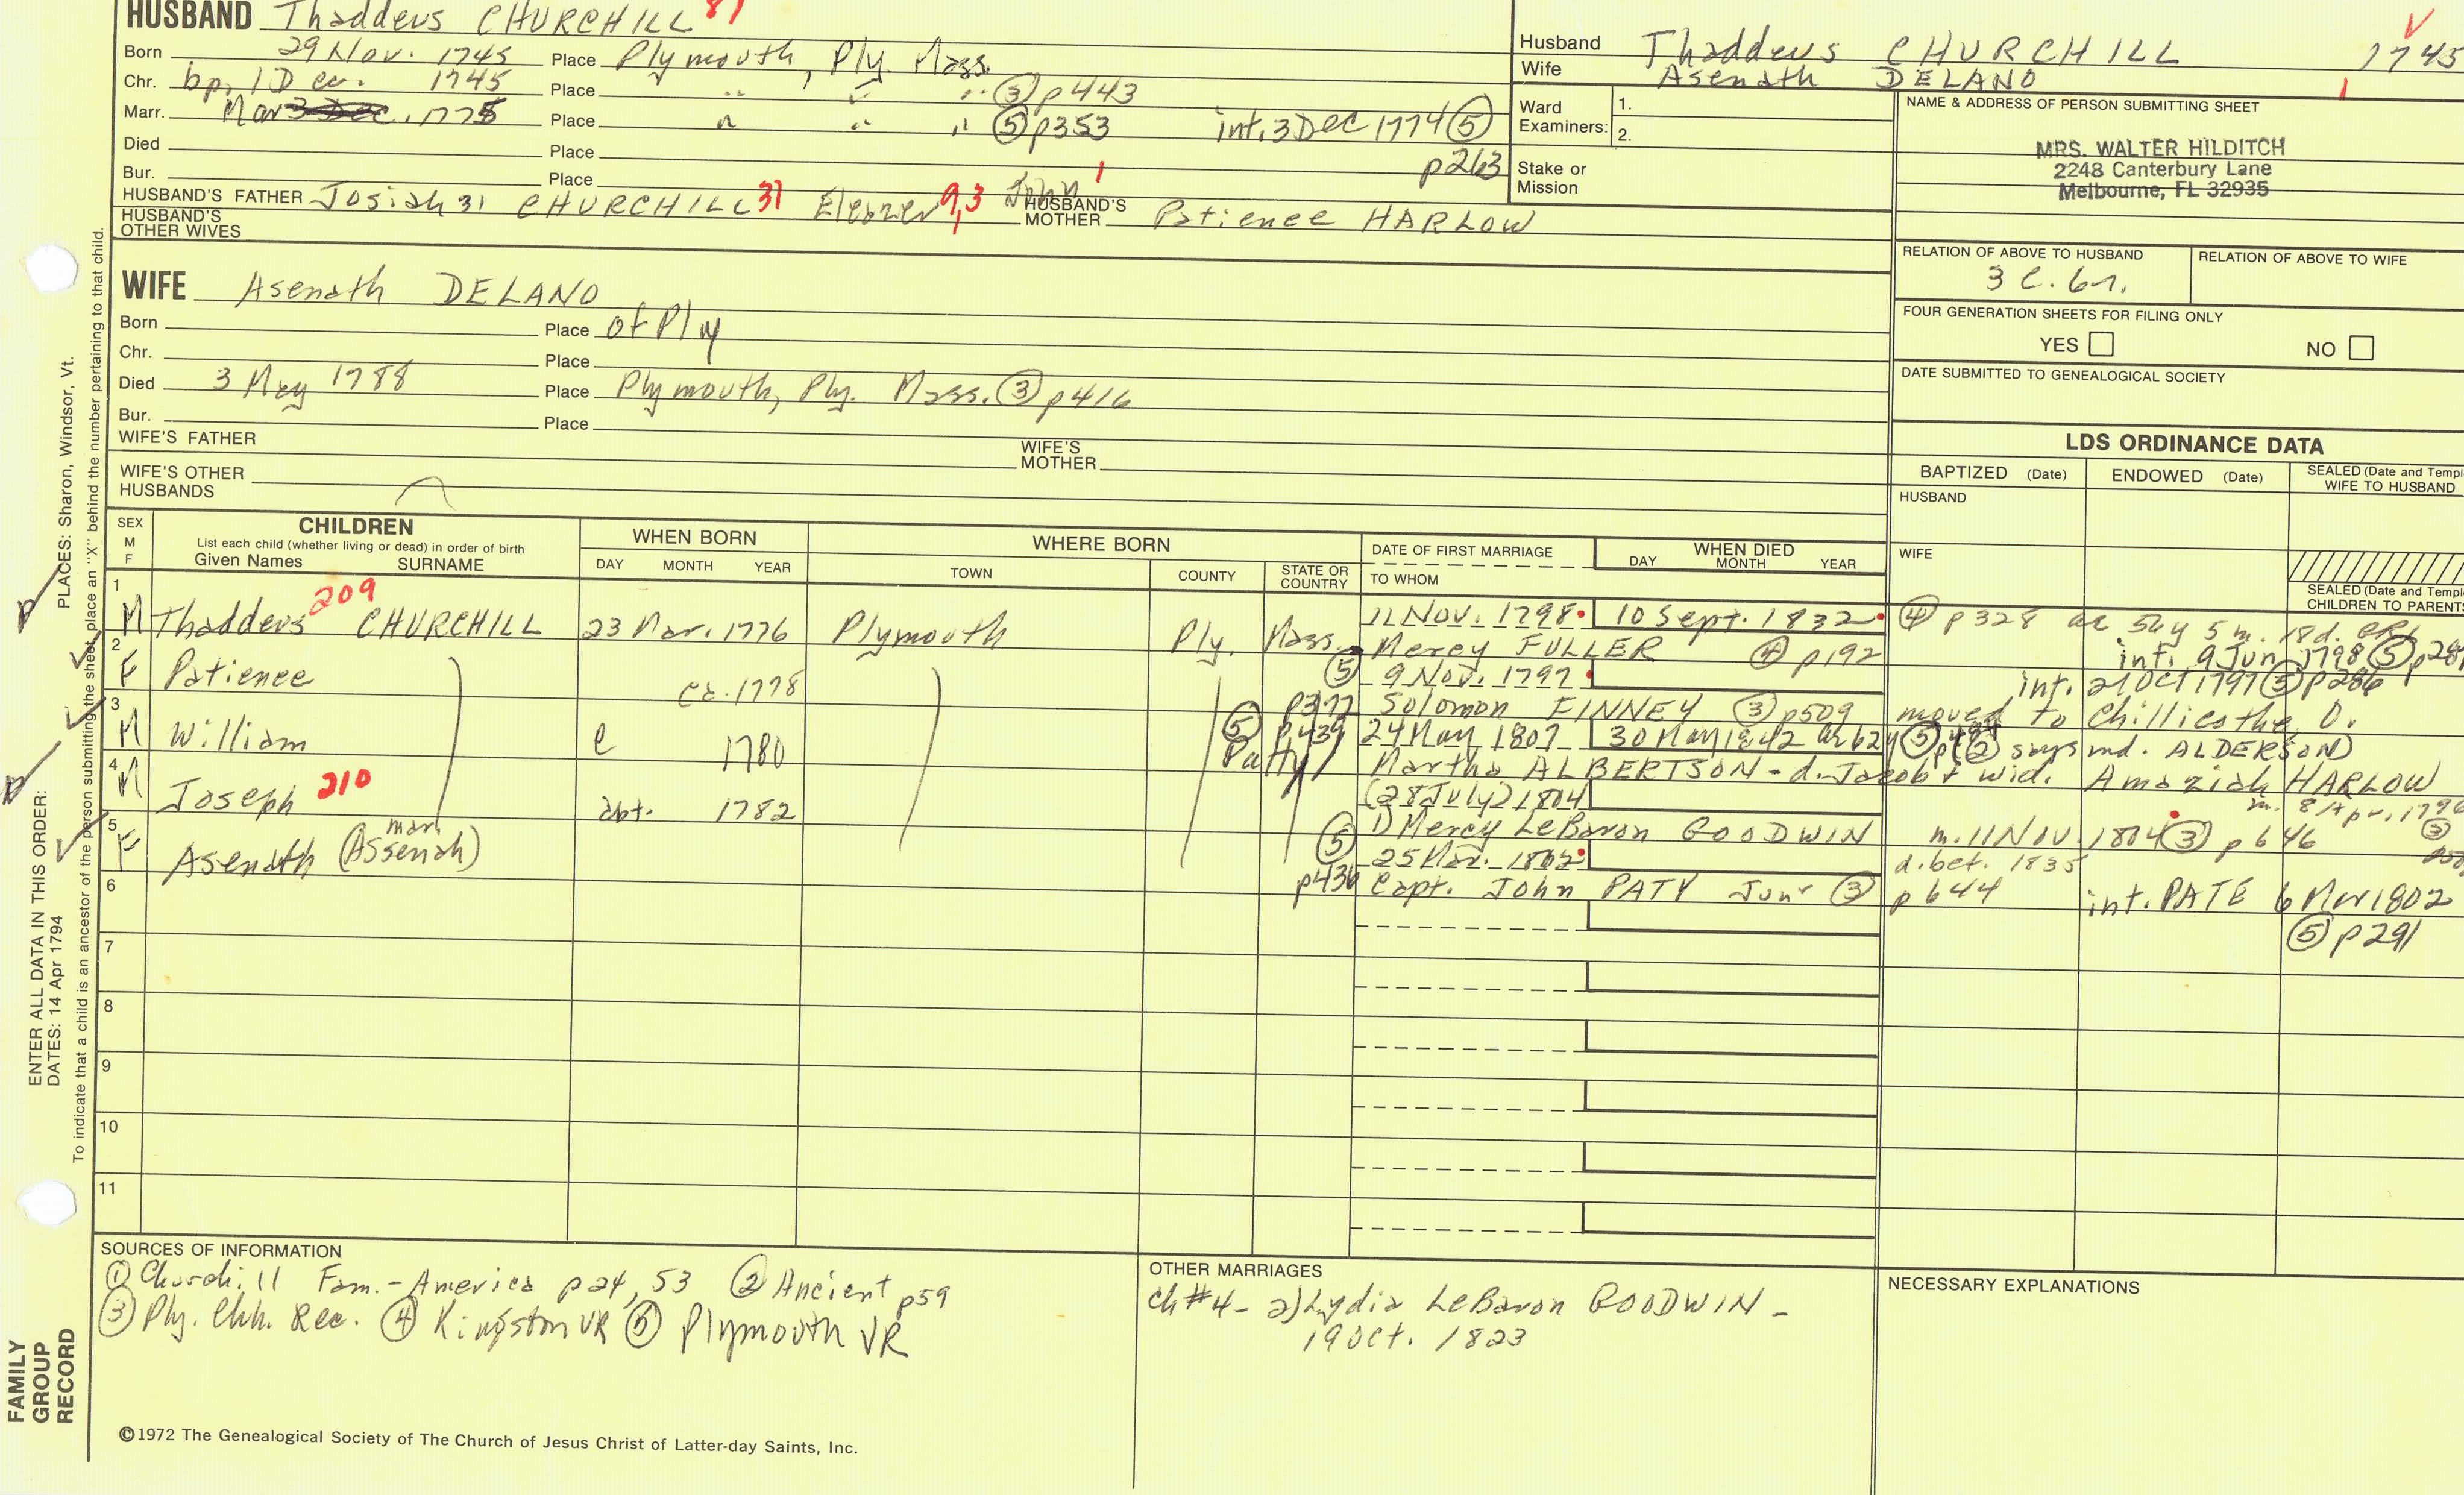 HUSBAND Thaddeus CHURCHILL 81
Born 29 Nov. 1745 Place Plymouth, Ply. Mass.
Chr. bp. 1 Dec. 1745 Place " " " ③ p443
Marr. Mar 3 Dec. 1775 Place " " " ⑤ p353 int. 3 Dec 1774 ⑤
p263
Died Place
Bur. Place
HUSBAND'S FATHER Josiah 31 CHURCHILL 31 Eleazer 9,3 John 1 HUSBAND'S MOTHER Patience HARLOW
HUSBAND'S OTHER WIVES
Husband Thaddeus CHURCHILL 1745
Wife Asenath DELANO
Ward Examiners: 1.
2.
Stake or Mission
NAME & ADDRESS OF PERSON SUBMITTING SHEET
MRS. WALTER HILDITCH
2248 Canterbury Lane
Melbourne, FL 32935
RELATION OF ABOVE TO HUSBAND RELATION OF ABOVE TO WIFE
3 C. 6r.
FOUR GENERATION SHEETS FOR FILING ONLY
YES NO
DATE SUBMITTED TO GENEALOGICAL SOCIETY
WIFE Asenath DELANO
Born Place of Ply
Chr. Place
Died 3 May 1788 Place Plymouth, Ply. Mass. ③ p416
Bur. Place
WIFE'S FATHER WIFE'S MOTHER
WIFE'S OTHER HUSBANDS
LDS ORDINANCE DATA
BAPTIZED (Date) ENDOWED (Date) SEALED (Date and Templ
WIFE TO HUSBAND
HUSBAND
WIFE
SEALED (Date and Templ
CHILDREN TO PARENTS
SEX M F
CHILDREN
List each child (whether living or dead) in order of birth
Given Names SURNAME
WHEN BORN
DAY MONTH YEAR
WHERE BORN
TOWN COUNTY STATE OR COUNTRY
DATE OF FIRST MARRIAGE
TO WHOM
WHEN DIED
DAY MONTH YEAR
1 M Thaddeus 209 CHURCHILL 23 Mar. 1776 Plymouth Ply. Mass. 11 Nov. 1798 10 Sept. 1832 ④ p328 ae 56y 5m. 18d. GR1
Mercy FULLER ④ p192 int. 9 Jun 1798 ⑤ p287
2 F Patience ca. 1778 ⑤ p377 9 Nov. 1797 int. 21 Oct 1797 ⑤ p286
Solomon FINNEY ③ p509 moved to Chillicothe, O.
3 M William c 1780 ⑤ p439 24 May 1807 30 May 1842 ae 62y ⑤ ② says md. ALDERSON)
Patty Martha ALBERTSON - d. Jacob & wid. Amaziah HARLOW
m. 8 Apr. 1796 ③
4 M Joseph 210 abt. 1782 (28 July) 1804
1) Mercy LeBaron GOODWIN m. 11 Nov. 1804 ③ p646
d. bet. 1835
5 F Asenath (Assenah) mar. ⑤ p436 25 Mar. 1802
Capt. John PATY Junr ③ p644 int. PATE 6 Mar 1802
⑤ p291
6
7
8
9
10
11
SOURCES OF INFORMATION
① Churchill Fam. - America p24, 53 ② Ancient p59
③ Ply. Chh. Rec. ④ Kingston VR ⑤ Plymouth VR
OTHER MARRIAGES
Ch #4 - 2) Lydia LeBaron GOODWIN -
19 Oct. 1823
NECESSARY EXPLANATIONS
©1972 The Genealogical Society of The Church of Jesus Christ of Latter-day Saints, Inc.
FAMILY GROUP RECORD
ENTER ALL DATA IN THIS ORDER:
DATES: 14 Apr 1794
PLACES: Sharon, Windsor, Vt.
To indicate that a child is an ancestor of the person submitting the sheet, place an "X" behind the number pertaining to that child.